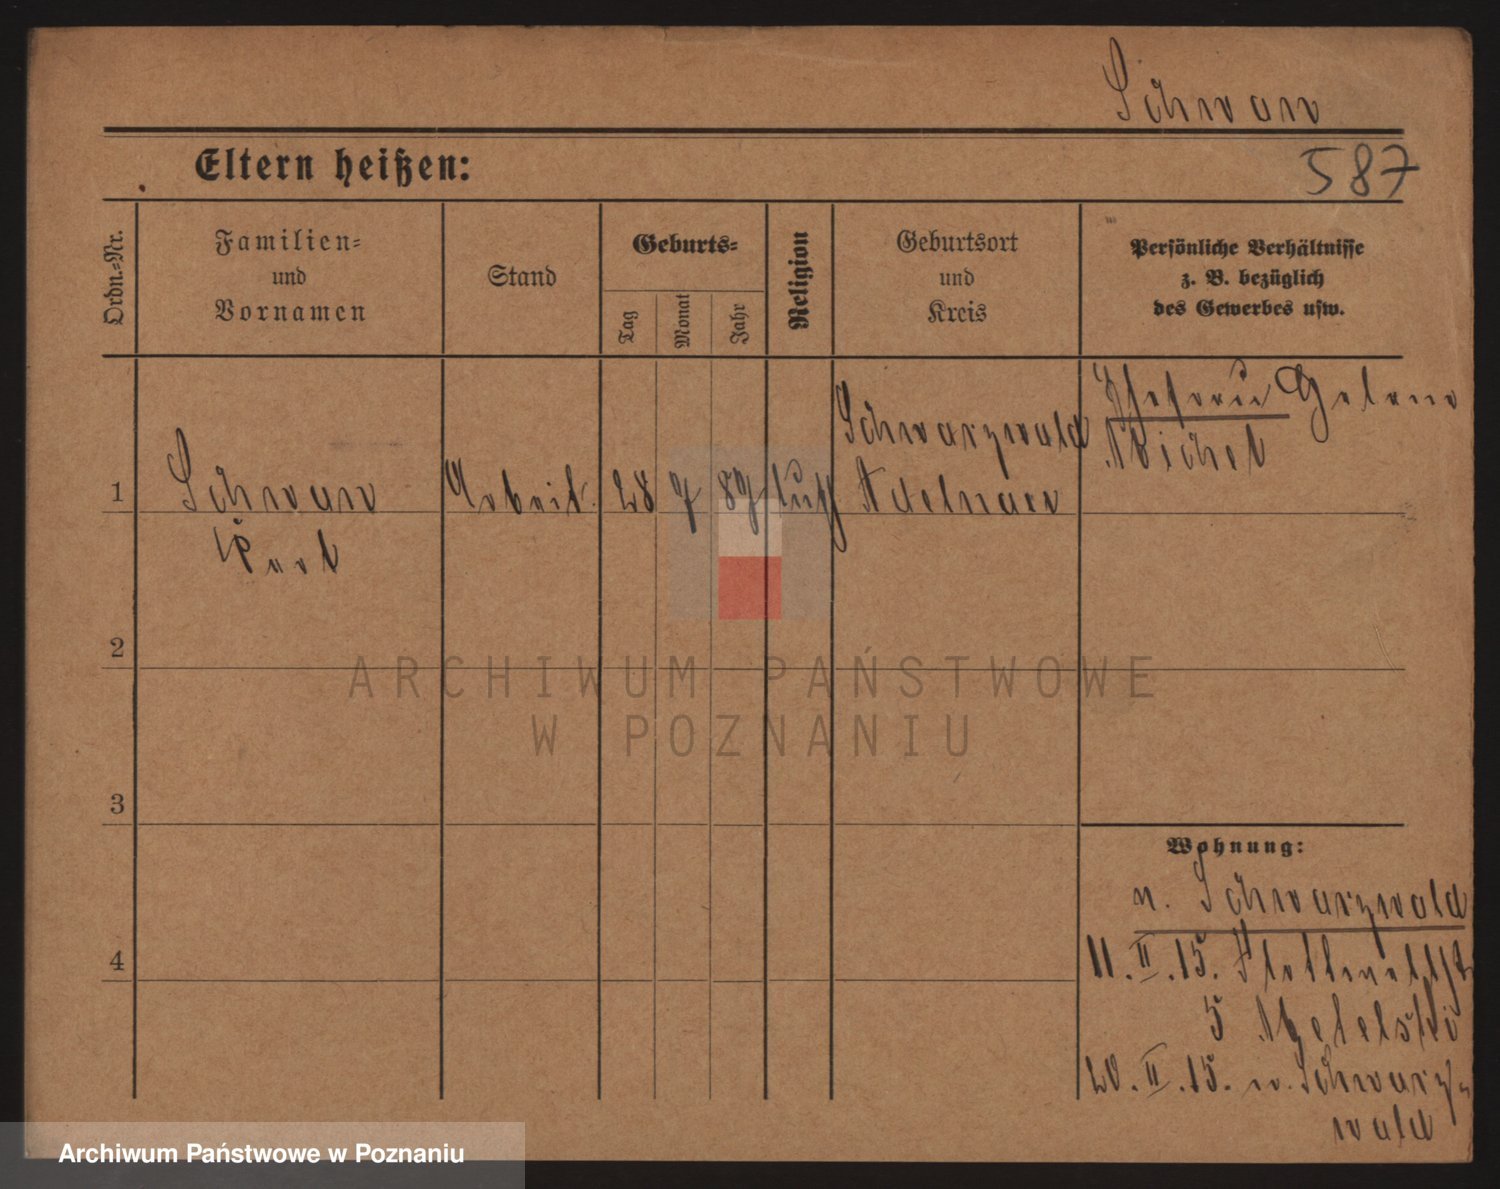 Schwan
Eltern heißen:
587
Ordn.-Nr.
Familien-
und
Vornamen
Stand
Geburts-
Tag
Monat
Jahr
Religion
Geburtsort
und
Kreis
Persönliche Verhältnisse
z. B. bezüglich
des Gewerbes usw.
1
Schwan
Arbeit.
28
7
89
Schwarzwald
Adelnau
2
3
4
Wohnung:
n. Schwarzwald
11. II. 15.
5
20. II. 15. n. Schwarz-
wald
ARCHIWUM PAŃSTWOWE
W POZNANIU
Archiwum Państwowe w Poznaniu